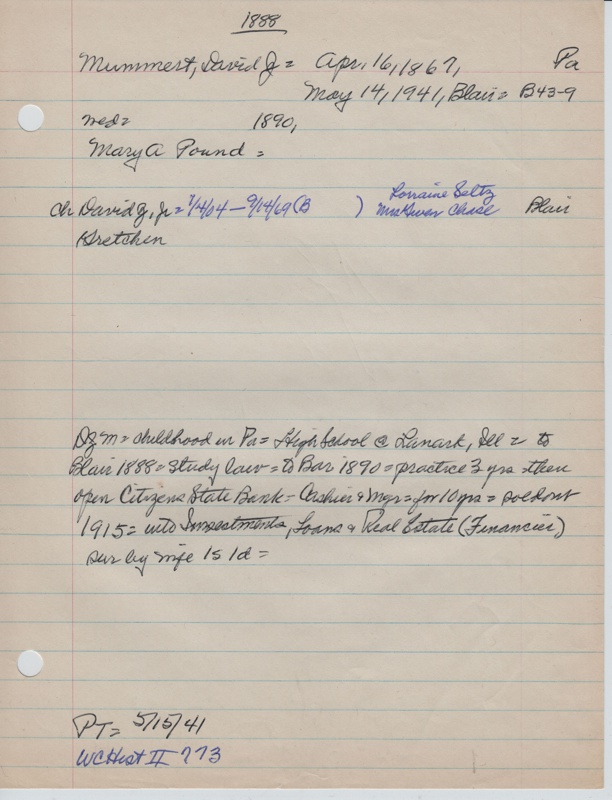 1888
Mummert, David Z = Apr. 16, 1867, Pa
May 14, 1941, Blair = B43-9
med = 1890,
Mary A Pound =
Lorraine Seltz
ch David Z, Jr = 7/4/04 - 9/14/69 (B ) Mrs Chase Blair
Gretchen
DZM = childhood in Pa = High School @ Lanark, Ill = to
Blair 1888 = study law = to Bar 1890 = practice 3 yrs = then
open Citizens State Bank - Cashier & Mgr = for 10 yrs = sold out
1915 = into Investments, Loans & Real Estate (Financier)
sur by wife 1s 1d =
PT = 5/15/41
WCHist II 773